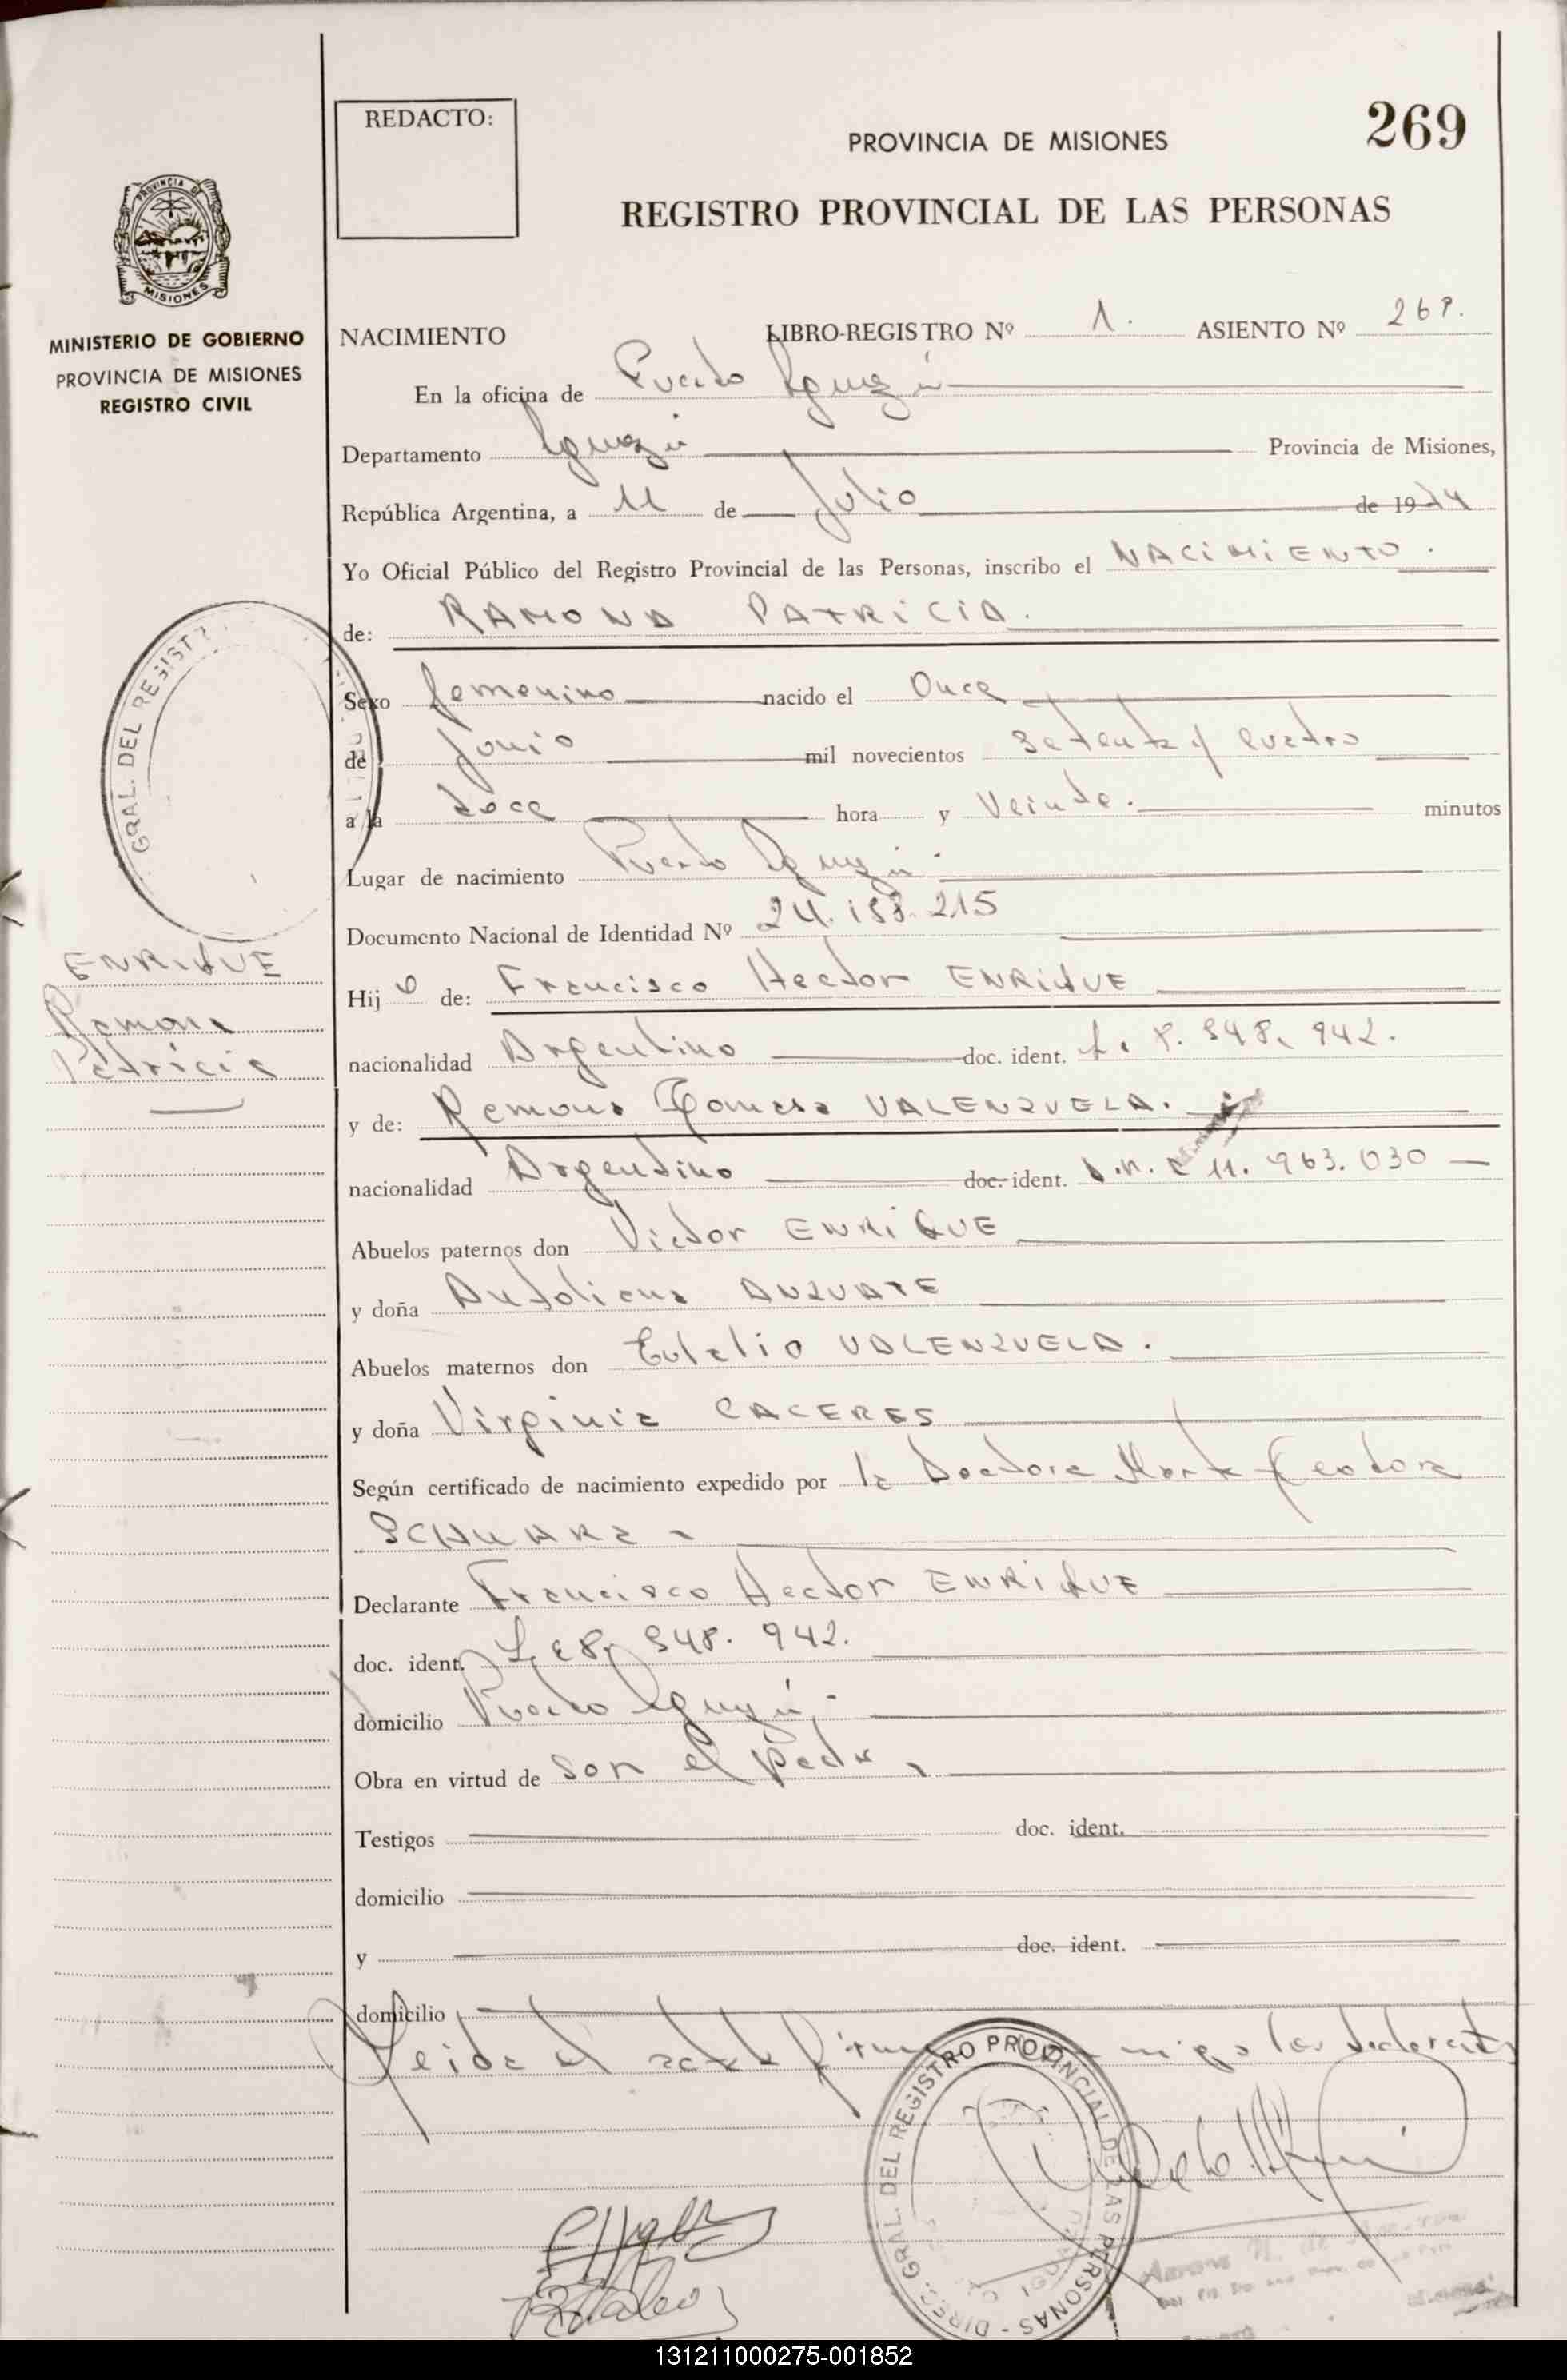 REDACTO:
PROVINCIA DE MISIONES
269
REGISTRO PROVINCIAL DE LAS PERSONAS
PROVINCIA DE MISIONES
MINISTERIO DE GOBIERNO
PROVINCIA DE MISIONES
REGISTRO CIVIL
NACIMIENTO LIBRO-REGISTRO Nº 1. ASIENTO Nº 269.
En la oficina de Puerto Iguazú
Departamento Iguazú Provincia de Misiones,
República Argentina, a 11 de Julio de 1974
Yo Oficial Público del Registro Provincial de las Personas, inscribo el NACIMIENTO.
de: RAMONA PATRICIA.
Sexo femenino nacido el Once
de Junio mil novecientos setenta y cuatro
a la doce hora y Veinte. minutos
Lugar de nacimiento Puerto Iguazú
Documento Nacional de Identidad Nº 24.158.215
GRAL. DEL REGIST
ENRIQUE
Ramona
Patricia
Hij a de: Francisco Hector ENRIQUE
nacionalidad Argentino doc. ident. 8.548.942.
y de: Ramona Tomasa VALENZUELA.
nacionalidad Argentino doc. ident. D.N.I 11.963.030
Abuelos paternos don Victor ENRIQUE
y doña Antoliana ANZUATE
Abuelos maternos don Eulalio VALENZUELA.
y doña Virginia CACERES
Según certificado de nacimiento expedido por la Doctora Marta Teodora
SCHWARZ
Declarante Francisco Hector ENRIQUE
doc. ident. L.E 8.548.942.
domicilio Puerto Iguazú
Obra en virtud de son el Padre
Testigos doc. ident.
domicilio
y doc. ident.
domicilio
Leida el acta firman migo los declarantes
DIREC. GRAL. DEL REGISTRO PROVINCIAL DE LAS PERSONAS
131211000275-001852